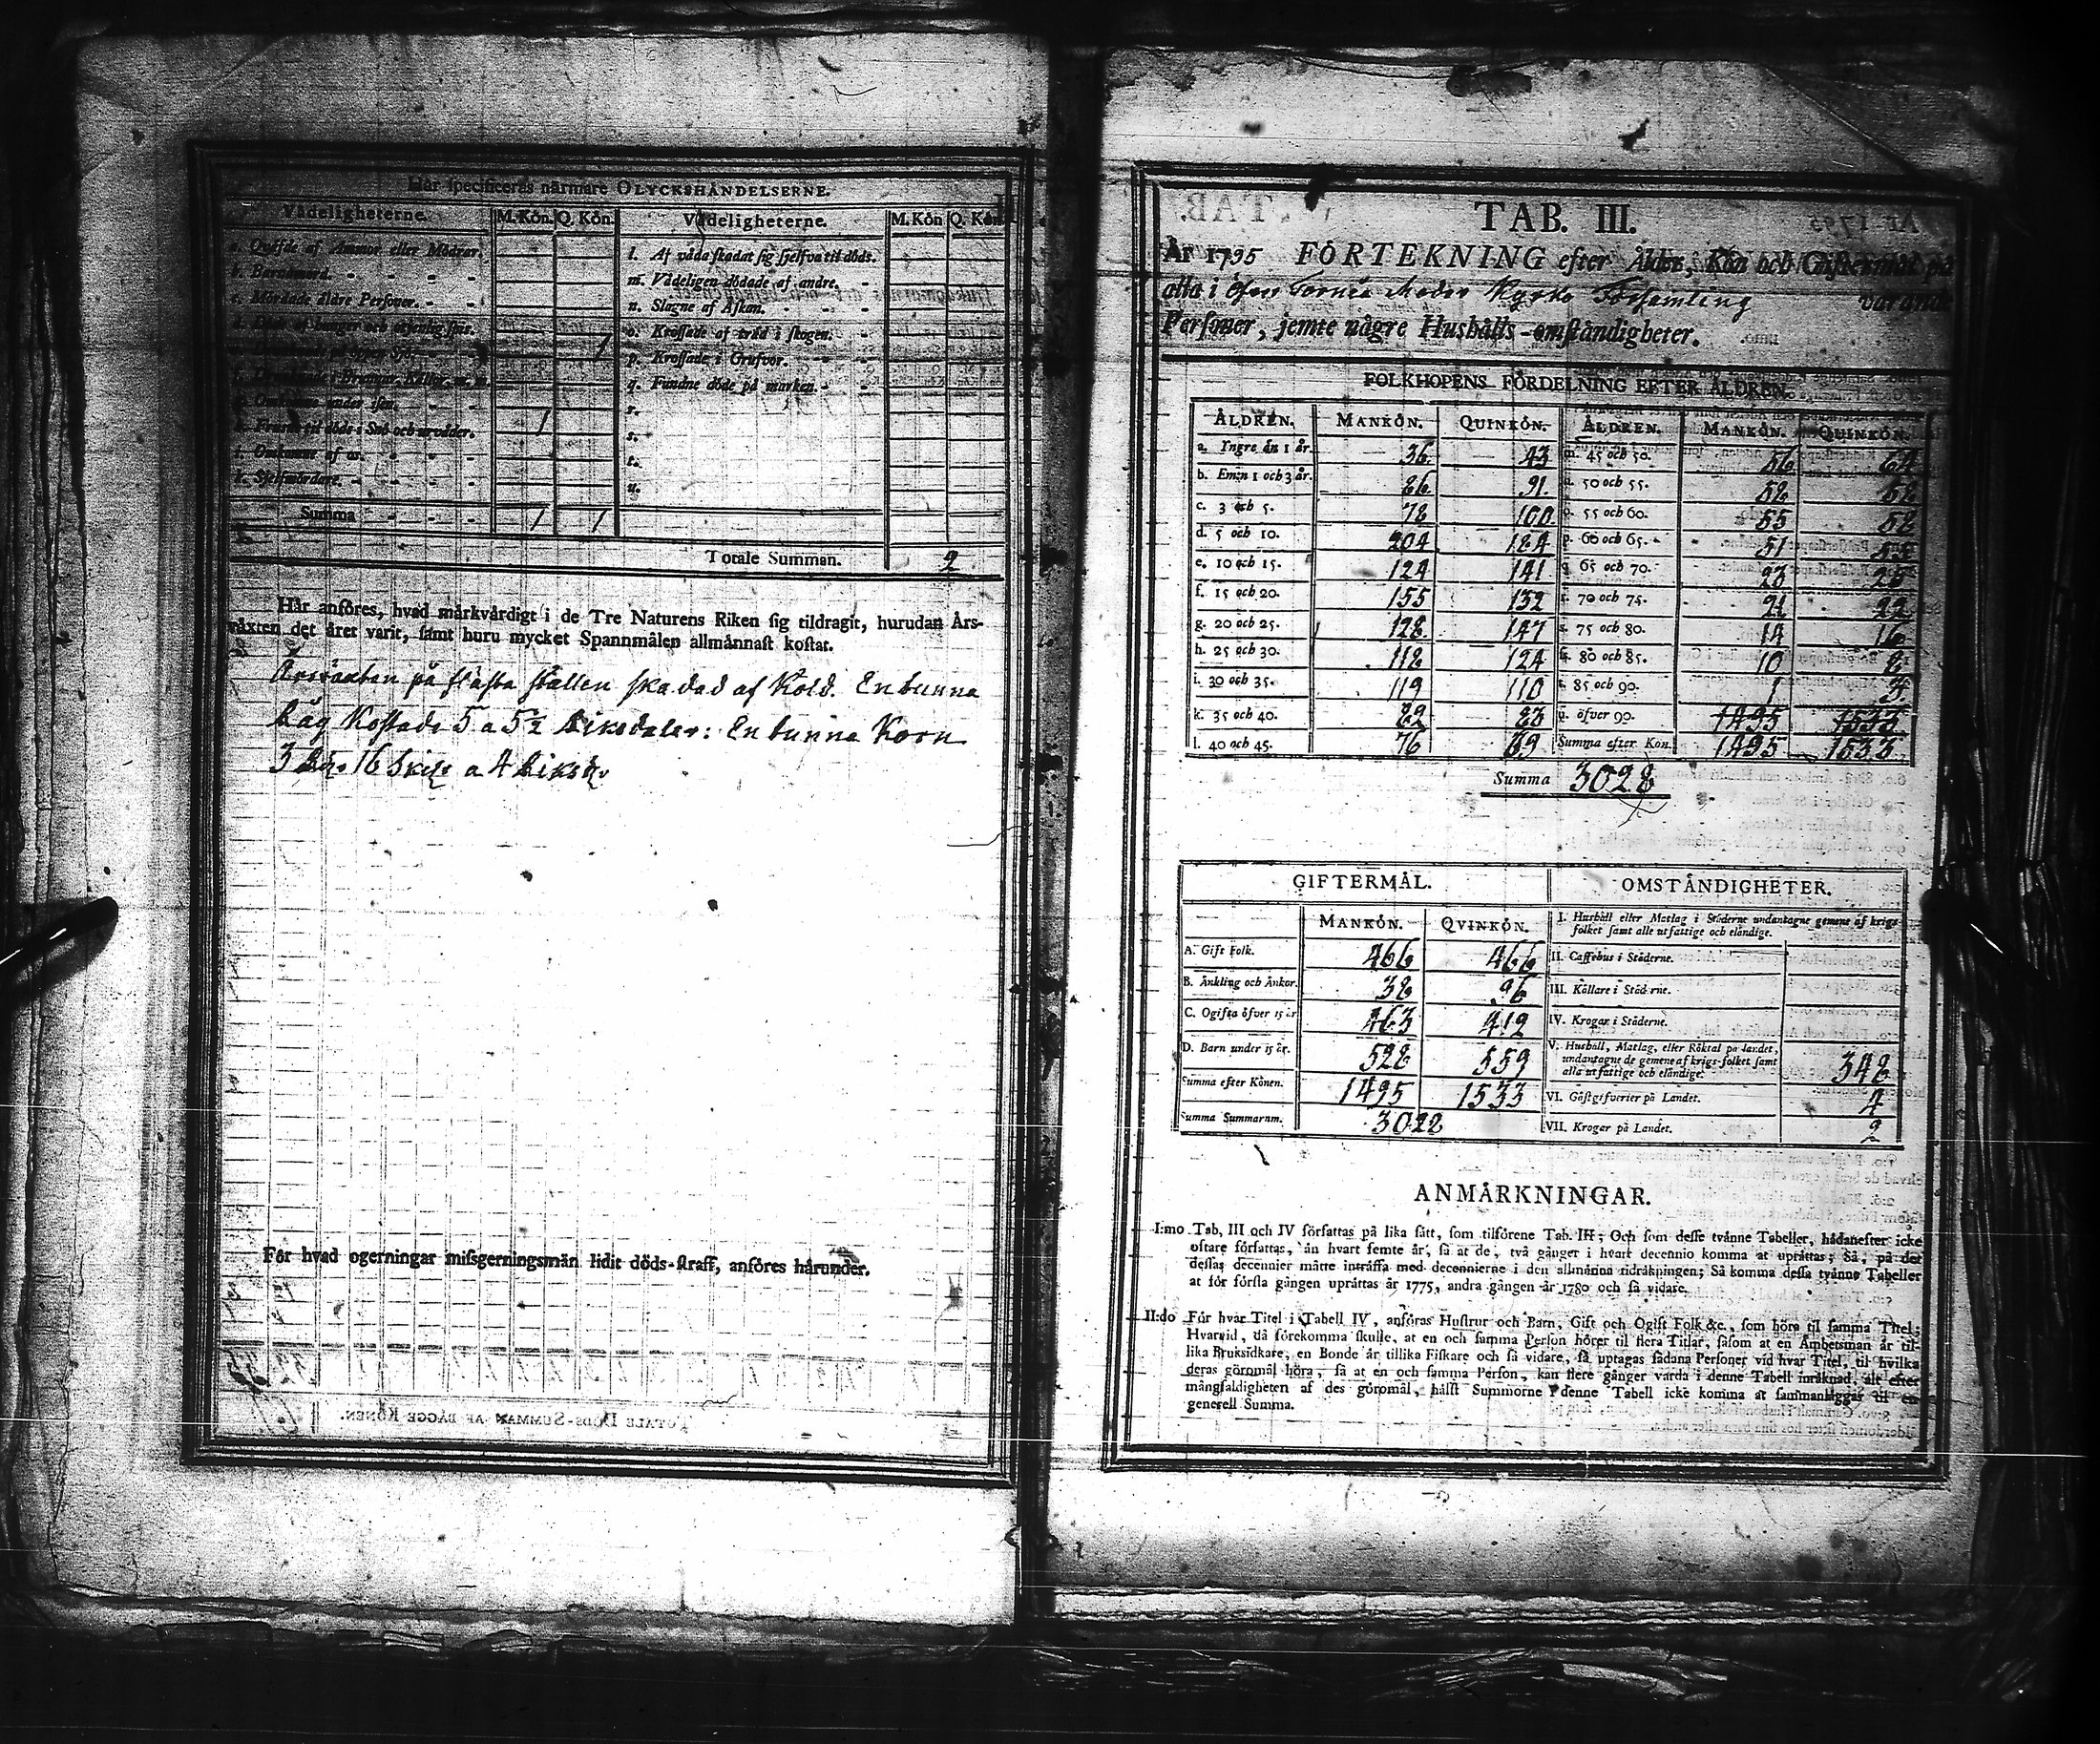 Här specificeras närmare OLYCKSHÄNDELSERNE.
Vådeligheterne. M.Kön. Q. Kön. Vådeligheterne. M.Kön Q. Kön
a. Qväfde af Ammor eller Mödrar. l. Af våda skadat sig sjelfva til döds.
b. Barnamord. m. Vådeligen dödade af andre.
c. Mördade äldre Personer. n. Slagne af Åskan.
o. Krossade af träd i skogen.
1 p. Krossade i Grufvor.
q. Fundne döde på marken.
r.
h. Frusne til döds i Snö och urväder. 1 s.
i. Omkomne af os. t.
k. Sjelfmördare. u.
Summa 1 1
Totale Summan. 2
Här anföres, hvad märkvärdigt i de Tre Naturens Riken sig tildragit, hurudan Års-
växten det året varit, samt huru mycket Spannmålen allmännast kostat.
Årsväxten på flästa ställen skadad af Köld. En tunna
Råg Kostade 5 a 5½ Riksdaler: En tunna Korn
3 Rd. 16 Skil. a 4 Riksd.
För hvad ogerningar missgerningsmän lidit döds-straff, anföres härunder.
TOTALE DÖDS-SUMMAN AF BÄGGE KÖNEN.
TAB. III.
År 1795 FÖRTEKNING efter Ålder, Kön och Giftermål på
alla i Öfver Torneå Moder Kyrko Församling varande
Personer, jemte några Hushålls-omständigheter.
FOLKHOPENS FÖRDELNING EFTER ÅLDREN.
ÅLDREN. MANKÖN. QUINKÖN. ÅLDREN. MANKÖN. QUINKÖN.
a. Yngre än 1 år. 36 43 m. 45 och 50. 56 64
b. Emin 1 och 3 år. 86 91 n. 50 och 55. 58 58
c. 3 och 5. 78 100 o. 55 och 60. 55 58
d. 5 och 10. 204 184 p. 60 och 65. 51 55
e. 10 och 15. 124 141 q. 65 och 70. 23 25
f. 15 och 20. 155 132 r. 70 och 75. 21 22
g. 20 och 25. 128 147 s. 75 och 80. 14 16
h. 25 och 30. 118 124 80 och 85. 10 8
i. 30 och 35. 119 110 85 och 90. 1
k. 35 och 40. 89 83 öfver 90. 1495 1533
l. 40 och 45. 76 89 Summa efter Kön. 1495 1533
Summa 3028
GIFTERMÅL. OMSTÄNDIGHETER.
MANKÖN. QVINKÖN. I. Hushåll eller Matlag i Städerne undantagne gemene af krigs-
folket samt alle utfattige och eländige.
A. Gift Folk. 466 466 II. Caffehus i Städerne.
B. Änkling och Änkor. 38 96 III. Källare i Städerne.
C. Ogifta öfver 15 år 463 412 IV. Krogar i Städerne.
D. Barn under 15 år. 528 559 V. Hushåll, Matlag, eller Röktal på landet,
undantagne de gemene af krigs-folket samt
alla utfattige och eländige. 348
Summa efter Könen. 1495 1533 VI. Gästgifverier på Landet. 4
Summa Summarum. 3028 VII. Krogar på Landet. 2
ANMÄRKNINGAR.
I:mo Tab, III och IV författas på lika sätt, som tilförene Tab. III; Och som desse tvänne Tabeller, hädanefter icke
oftare författas, än hvart femte år, så at de, två gånger i hvart decennio komma at upprättas; Så, på det
dessas decennier måtte inträffa med decennierne i den allmänna tidräkningen; Så komma dessa tvänne Tabeller
at för första gången upprättas år 1775, andra gången år 1780 och så vidare.
II:do För hvar Titel i Tabell IV, anföras Hustrur och Barn, Gift och Ogift Folk &c., som höra til samma Titel;
Hvarvid, då förekomma skulle, at en och samma Person hörer til flera Titlar, såsom at en Ämbetsman är til-
lika Bruksidkare, en Bonde är tillika Fiskare och så vidare, så uptagas sådana Personer vid hvar Titel, til hvilka
deras göromål höra, så at en och samma Person, kan flere gånger varda i denne Tabell inräknad, alt efter
mångfaldigheten af des göromål, hälst Summorne i denne Tabell icke komma at sammanläggas til en
generell Summa.